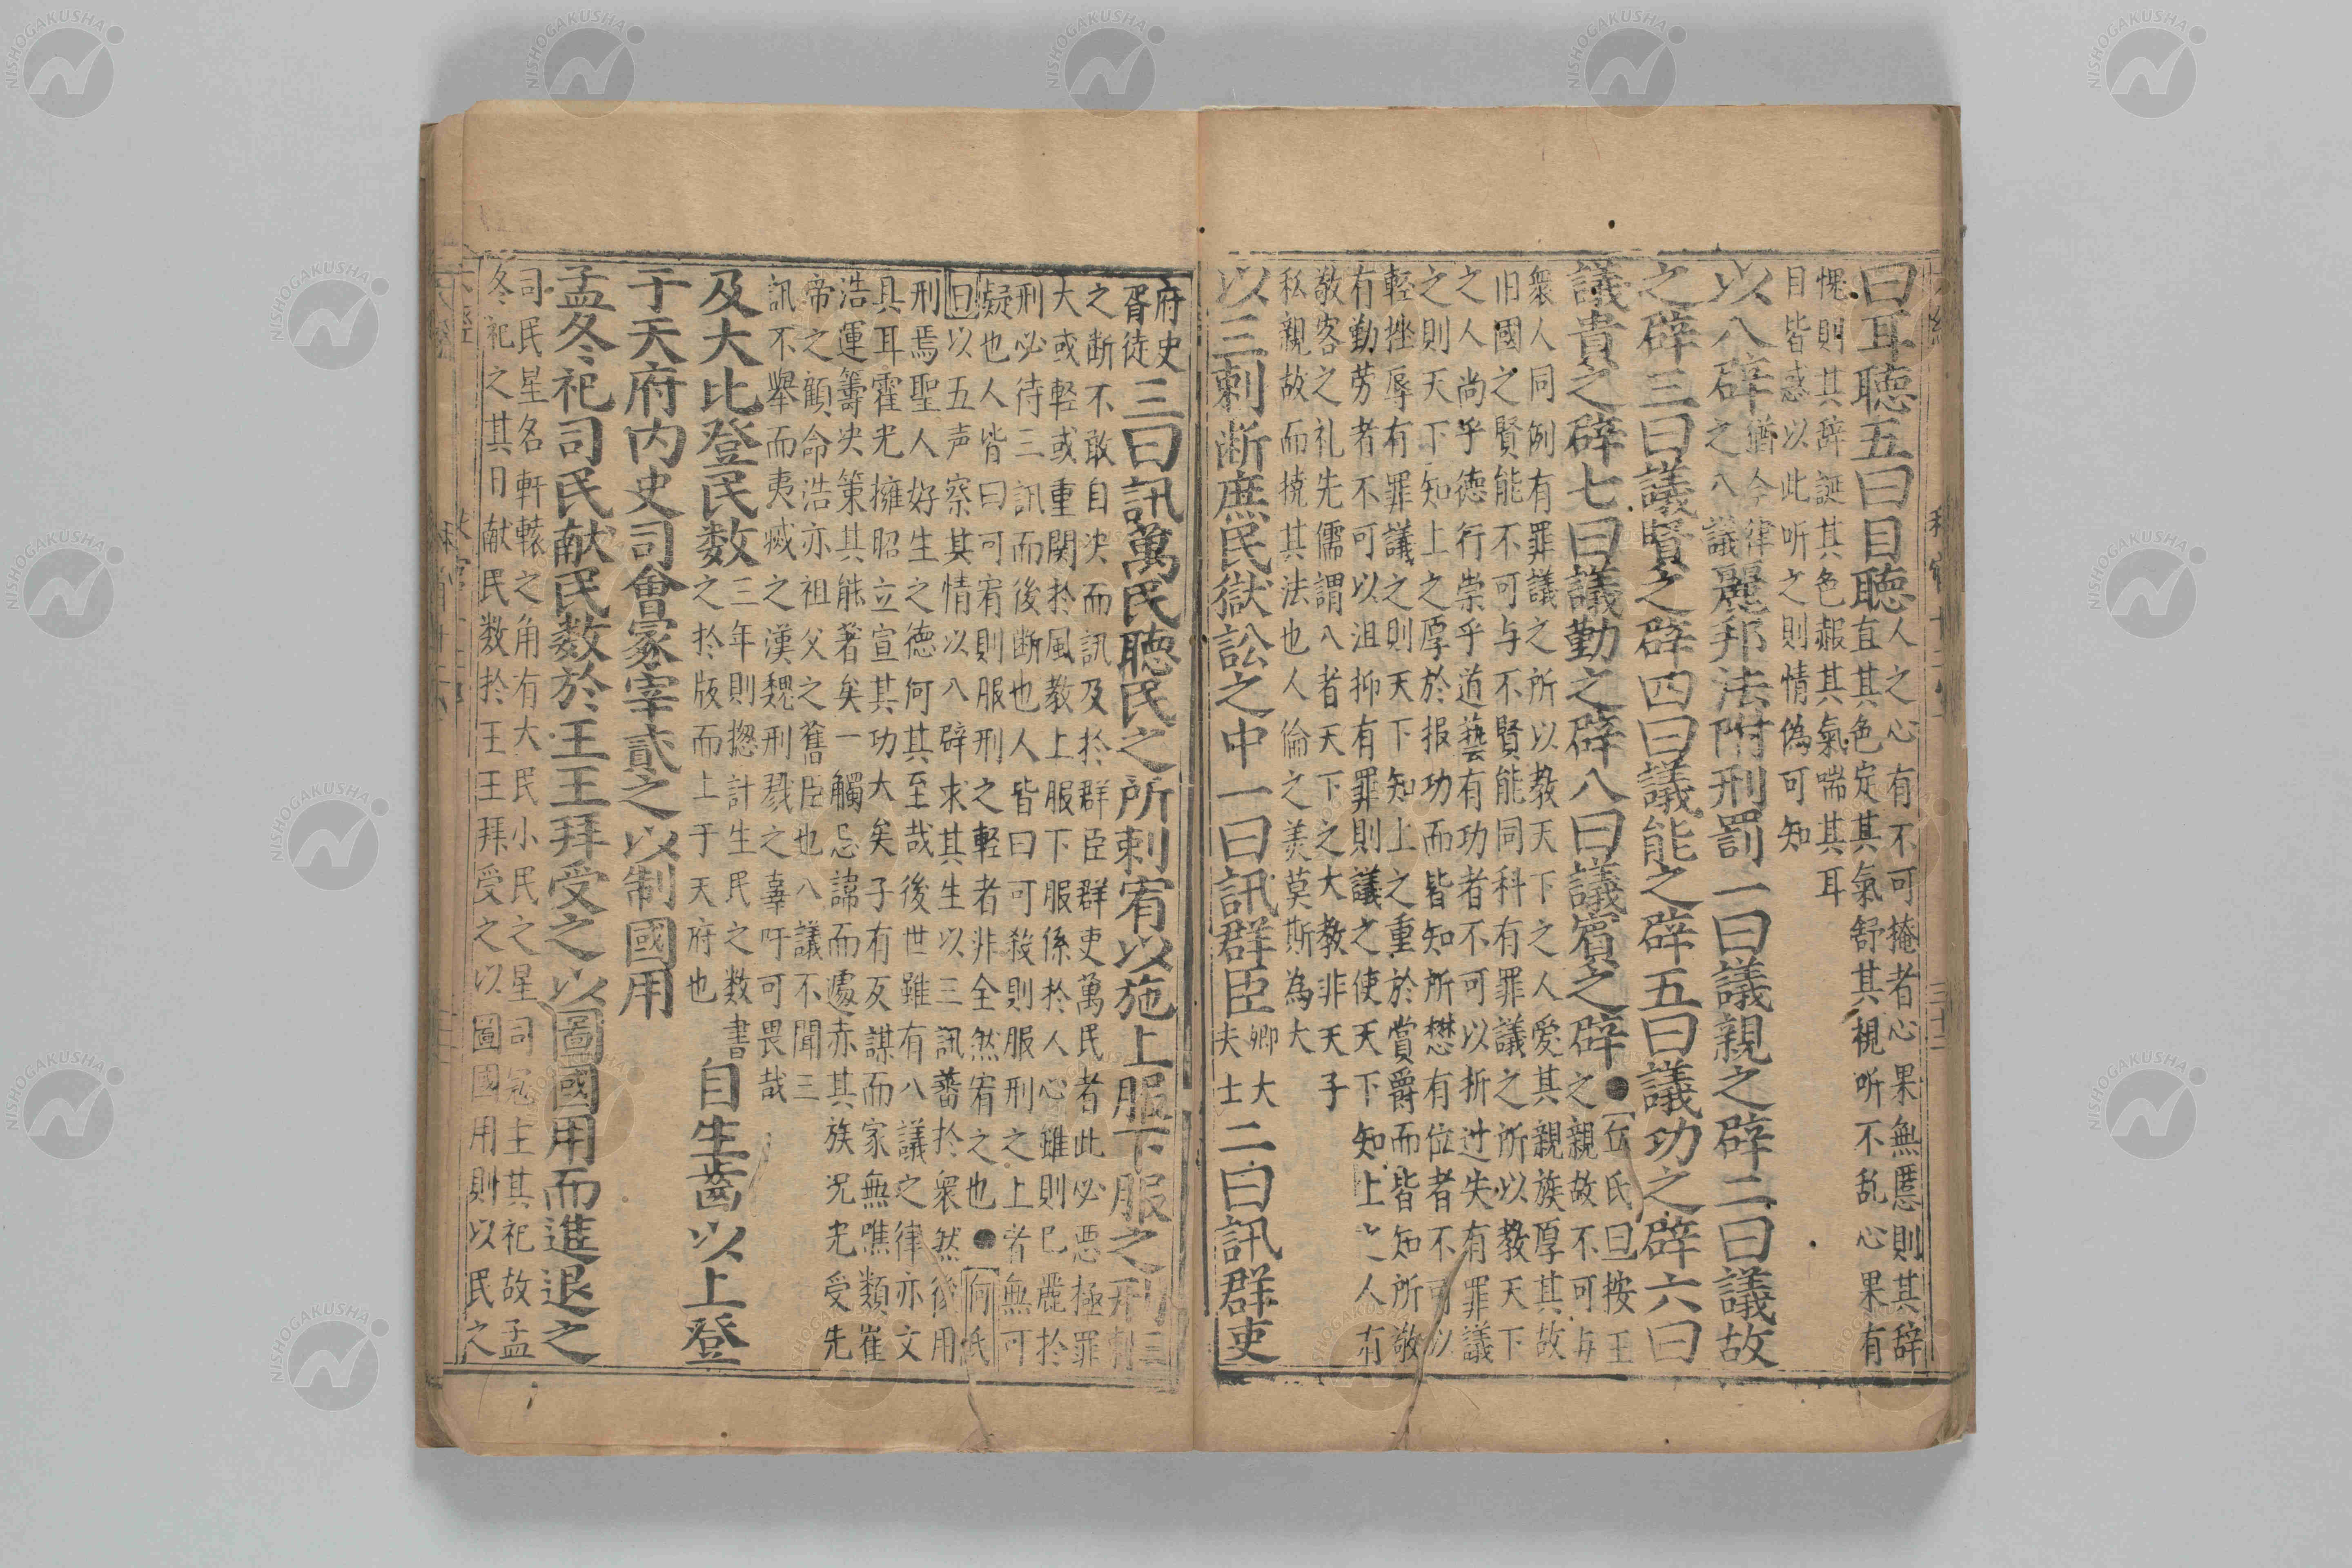 曰耳聽五曰目聽人之心有不可掩者心果無慝則其辞
直其色定其氣舒其視听不乱心果有
愧則其辞誕其色赧其氣喘其耳
目皆惑以此听之則情偽可知
以八辟猶今律
之八議麗邦法附刑罰一曰議親之辟二曰議故
之辟三曰議賢之辟四曰議能之辟五曰議功之辟六曰
議貴之辟七曰議勤之辟八曰議賓之辟●丘氏曰按王
之親故不可与
衆人同例有罪議之所以教天下之人愛其親族厚其故
旧國之賢能不可与不賢能同科有罪議之所以教天下
之人尚乎德行崇乎道藝有功者不可以折过失有罪議
之則天下知上之厚於报功而皆知所懋有位者不可以
輕挫辱有罪議之則天下知上之重於賞爵而皆知所敬
有勤劳者不可以沮抑有罪則議之使天下知上之人有
敬客之礼先儒謂八者天下之大教非天子
私親故而撓其法也人倫之美莫斯為大
以三刺断庶民獄訟之中一曰訊群臣卿大
夫士二曰訊群吏
府史
胥徒三曰訊萬民聽民之所刺宥以施上服下服之刑三
刺
之断不敢自决而訊及於群臣群吏萬民者此必惡極罪
大或輕或重関於風教上服下服係於人心雖則已麗於
刑必待三訊而後断也人皆曰可殺則服刑之上者無可
疑也人皆曰可宥則服刑之輕者非全然宥之也●何氏
曰以五声察其情以八辟求其生以三訊蕃於衆然後用
刑焉聖人好生之德何其至哉後世雖有八議之律亦文
具耳霍光擁昭立宣其功大矣子有反謀而家無噍類崔
浩運籌决策其能著矣一觸忌諱而遽赤其族况光受先
帝之顧命浩亦祖父之舊臣也八議不聞三
訊不舉而夷滅之漢魏刑戮之辜吁可畏哉
及大比登民数三年則揔計生民之数書
之於版而上于天府也自生齒以上登
于天府内史司會冢宰貳之以制國用
孟冬祀司民献民数於王王拜受之以圖國用而進退之
司民星名軒轅之角有大民小民之星司冦主其祀故孟
冬祀之其日献民数於王王拜受之以圖國用則以民之
NISHOGAKUSHA